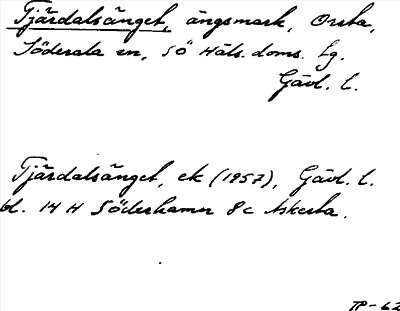 Tjärdalsänget, ängsmark, Orsta,
Söderala sn, SÖ Häls. doms. tg.
Gävl. l.
Tjärdalsänget, ek (1957), Gävl. l.
bl. 14 H Söderhamn 8c Askesta.
TP-62